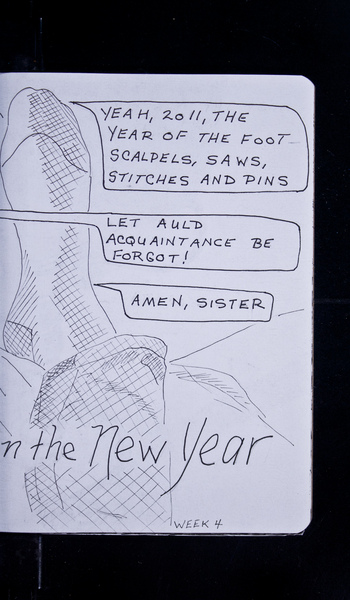 YEAH, 2011, THE
YEAR OF THE FOOT
SCALPELS, SAWS,
STITCHES AND PINS
LET AULD
ACQUAINTANCE BE
FORGOT!
AMEN, SISTER
n the New Year
WEEK 4